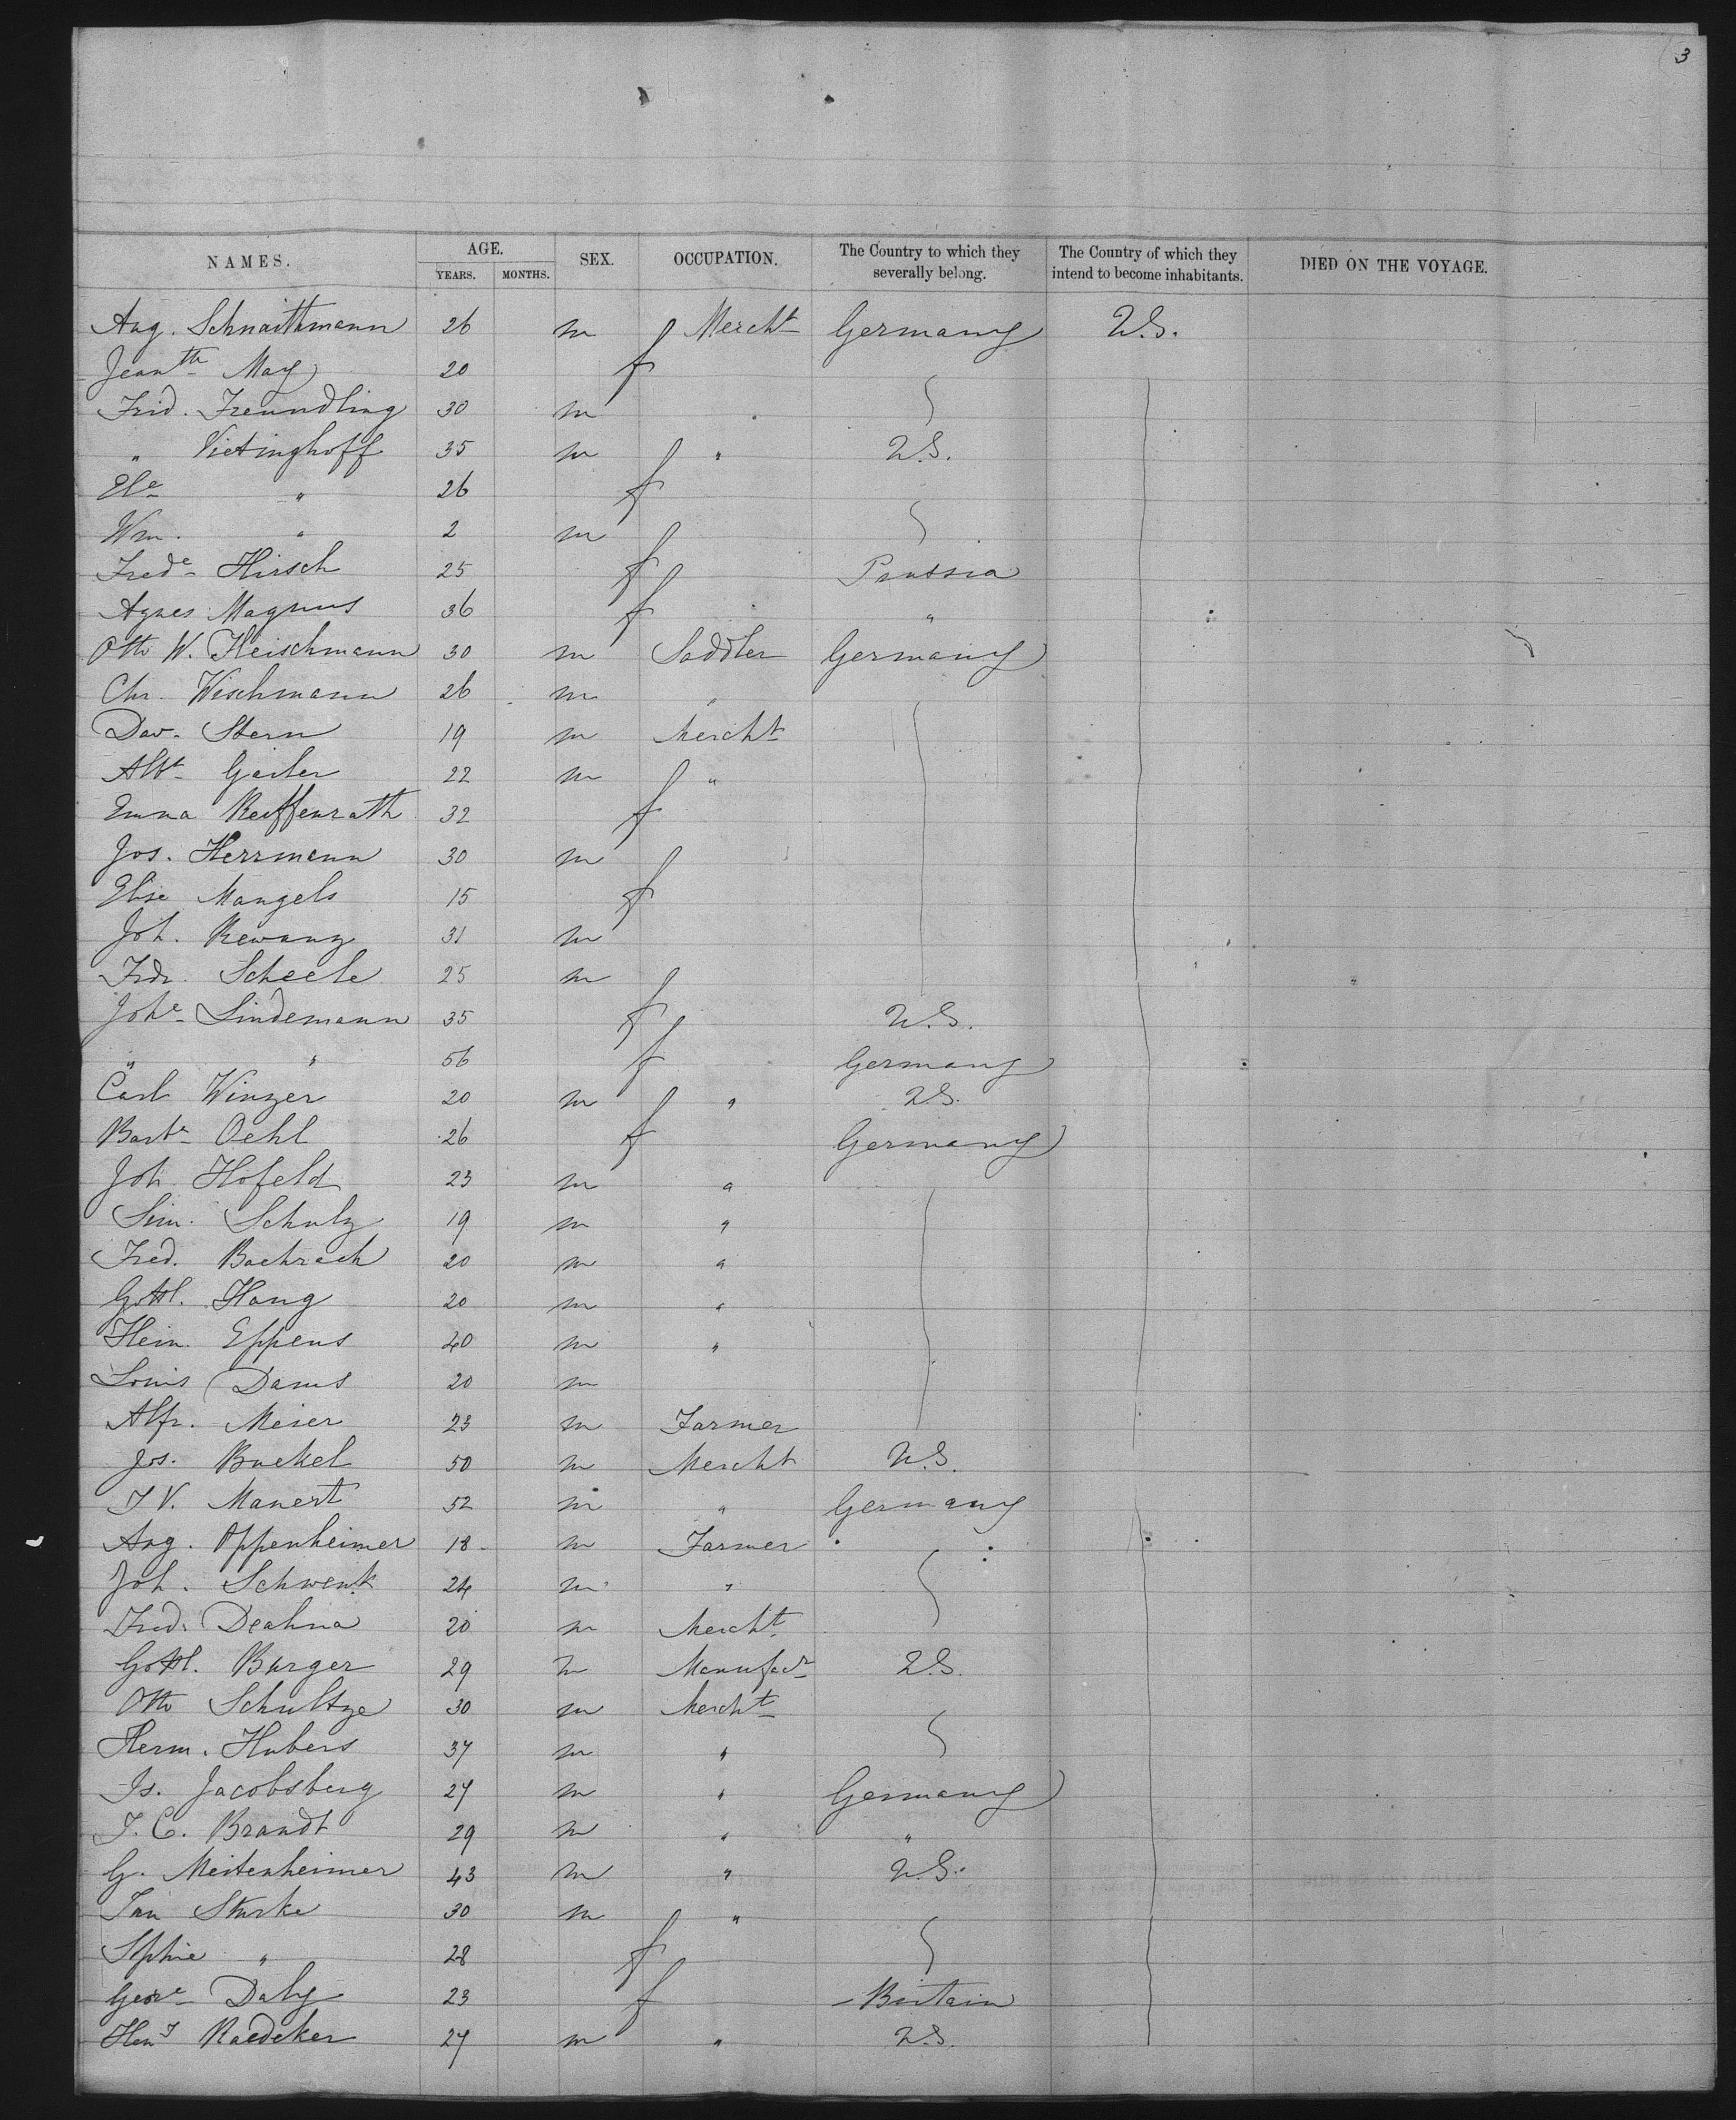 3
NAMES. AGE. YEARS. MONTHS. SEX. OCCUPATION. The Country to which they severally belong. The Country of which they intend to become inhabitants. DIED ON THE VOYAGE.
Aug. Schnaithmann 26 m Mercht Germany U.S.
Jeantte May 20 f
Frid. Freundling 30 m
" Vietinghoff 35 m " U.S.
Ele " 26 f
Wm. " 2 m
Frede Hirsch 25 f Prussia
Agnes Magnus 36 f "
Otto W. Fleischmann 30 m Saddler Germany
Chr. Wischmann 26 m "
Dav. Stern 19 m Mercht
Albt Geiler 22 m "
Emma Reiffenrath 32 f
Jos. Herrmann 30 m
Elise Mangels 15 f
Joh. Rewanz 31 m
Frdr. Scheele 25 m
Johe Lindemann 35 f U.S.
" " 56 f Germany
Carl Winzer 20 m " U.S.
Barba Oehl 26 f Germany
Joh. Hofeld 23 m "
Sim. Schulz 19 m "
Fred. Bachrach 20 m "
Gottl. Haug 20 m "
Hein. Eppens 40 m "
Louis Dams 20 m
Alfr. Meier 23 m Farmer
Jos. Buckel 50 m Mercht U.S.
J V. Manert 52 m " Germany
Aug. Oppenheimer 18 m Farmer
Joh. Schwenk 24 m "
Fred. Deahna 20 m Mercht
Gottl. Burger 29 m Manufactr U.S.
Otto Schultze 30 m Mercht
Herm. Hubers 37 m "
Is. Jacobsberg 27 m " Germany
J. C. Brandt 29 m " "
G. Meitenheimer 43 m " U.S.
Jan Sturke 30 m "
Sophie " 28 f
Daly 23 f Britain
Heny Raedeker 27 m " U.S.